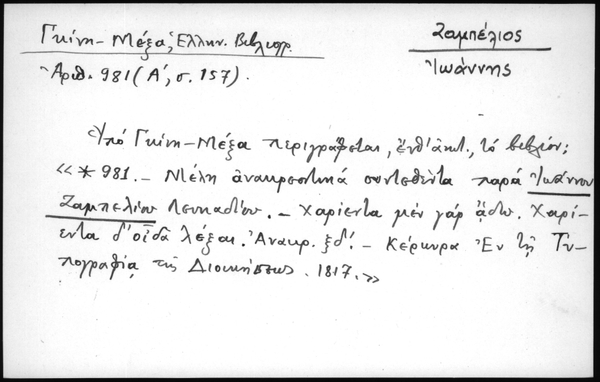 Γκίνη - Μέξα, Ἑλλην. Βιβλιογρ.
Ζαμπέλιος
Ἀριθ. 981 (Α΄, σ. 157).
Ἰωάννης
Ὑπό Γκίνη - Μέξα περιγράφεται, ἔνθ' ἀνωτ., τό βιβλίον:
«*981. - Μέλη ἀνακρεοντικά συντεθέντα παρά Ἰωάννου
Ζαμπελίου Λευκαδίου. - Χαρίεντα μέν γάρ ᾄδω. Χαρί-
εντα δ' οἶδα λέξαι. Ἀνακρ. ξδ΄. - Κέρκυρα Ἐν τῇ Τυ-
πογραφίᾳ τῆς Διοικήσεως. 1817.»